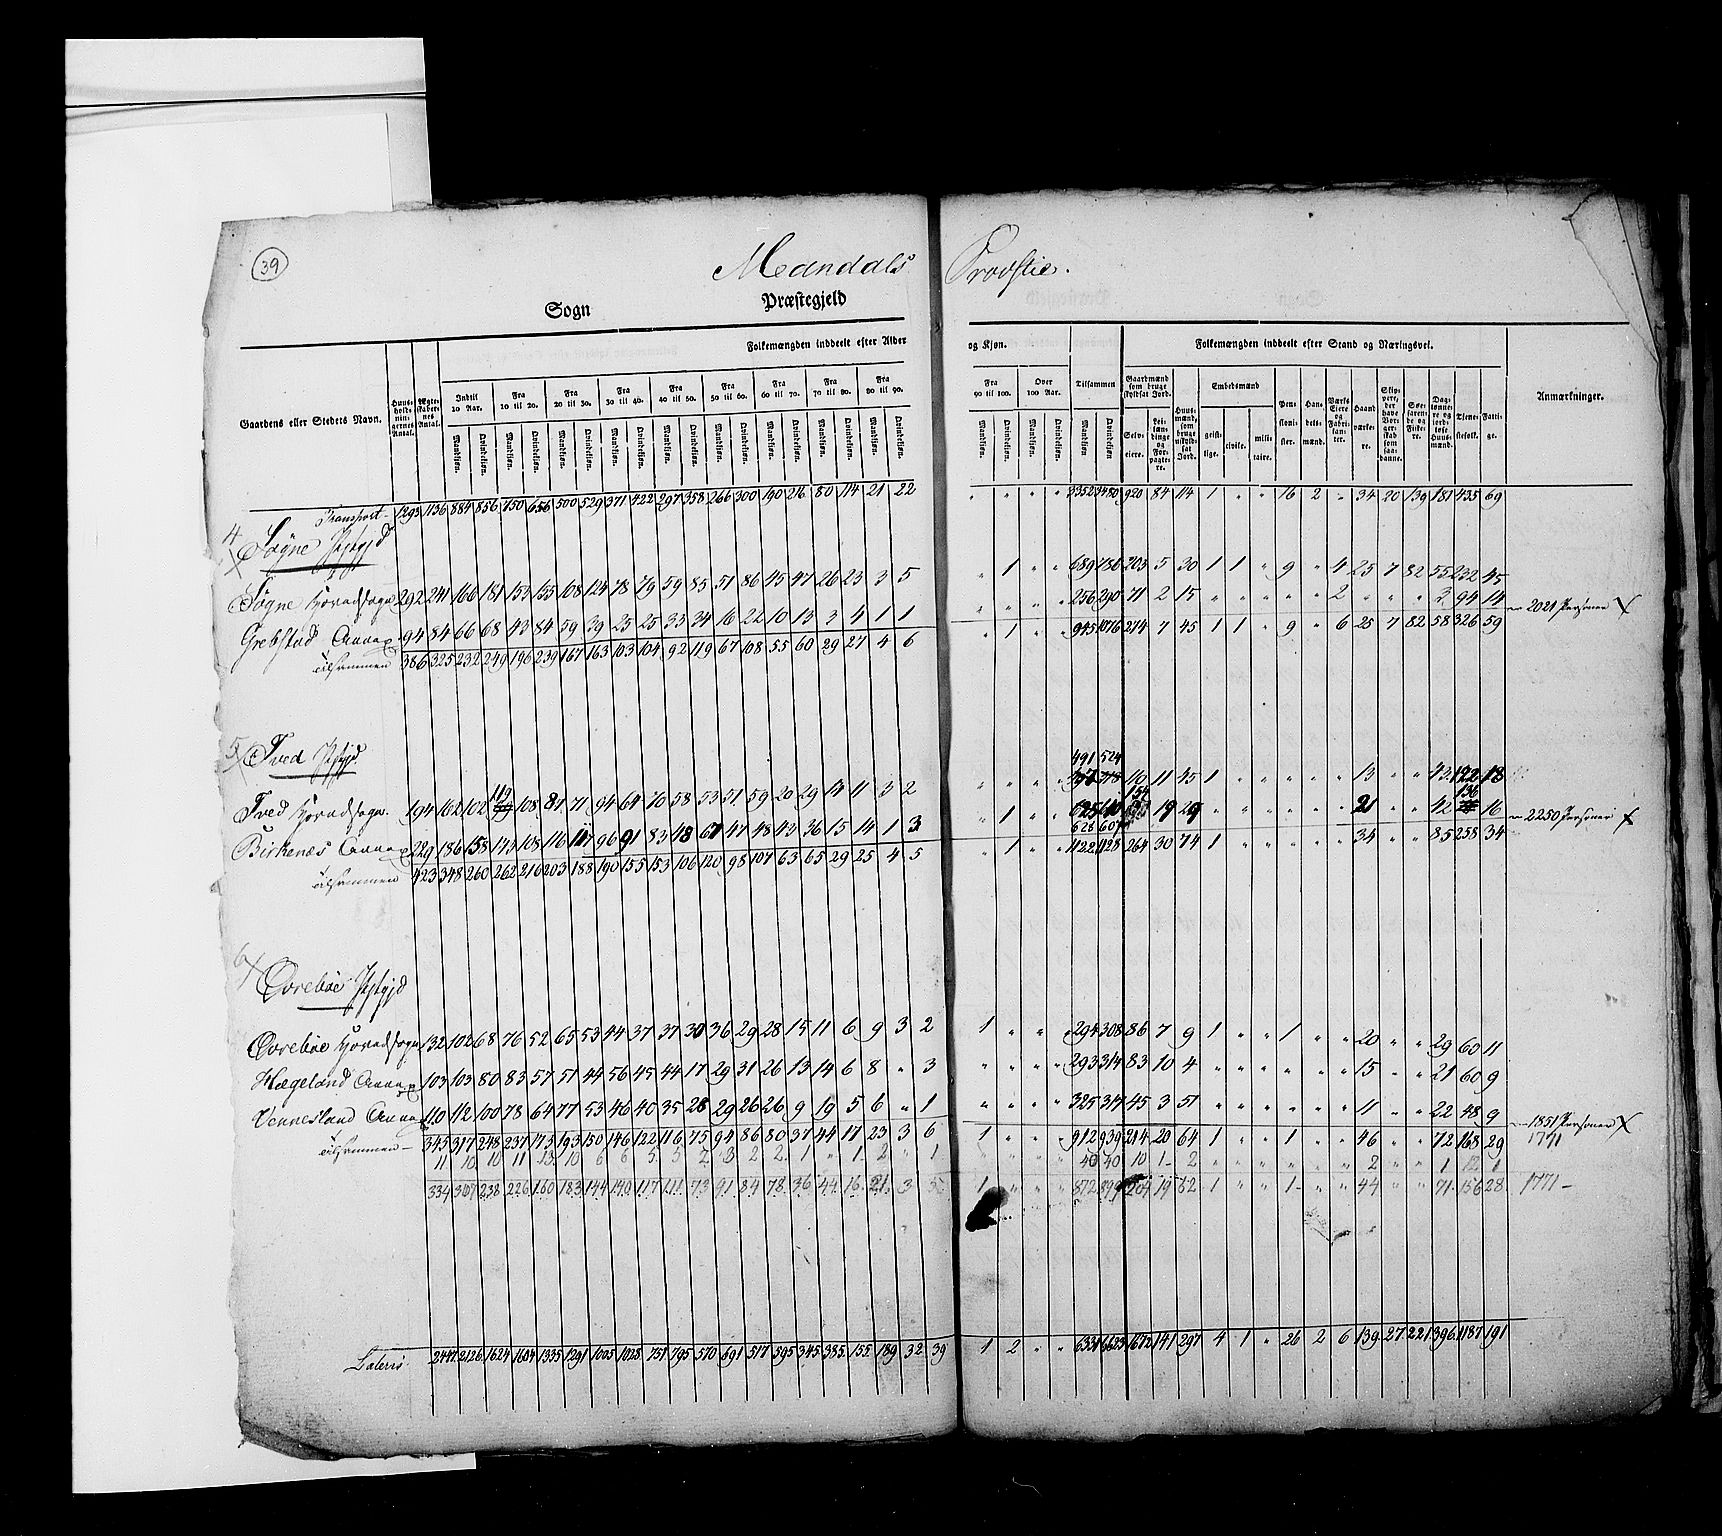 39
Mandals Provstie.
Sogn Præstegjeld
Folkemængden inddeelt efter Alder og Kjøn. Folkemængden inddeelt efter Stand og Næringsvei.
Gaardens eller Stedets Navn. Huus-hold-nin-gernes Antal. Ægte-skaber-nes Antal. Indtil 10 Aar. Fra 10 til 20. Fra 20 til 30. Fra 30 til 40. Fra 40 til 50. Fra 50 til 60. Fra 60 til 70. Fra 70 til 80. Fra 80 til 90. Fra 90 til 100. Over 100 Aar. Tilsammen Gaardmænd som bruge skyldsat Jord. Huus-mænd, som bruge uskyld-sat Jord. Embedsmænd Pen-sioni-ster. Han-dels-mænd. Værks Eiere og Fabri-kan-ter. Haand værke-re. Skip-pere, der have Bor-ger-skab som saa-danne. Søe-farende og Fiske-re. Dag-lønne-re og jord-løse Huus-mænd. Tjene-stefolk. Fatti-ge. Anmærkninger.
Mandkjøn. Qvindekjøn. Mandkjøn. Qvindekjøn. Mandkjøn. Qvindekjøn. Mandkjøn. Qvindekjøn. Mandkjøn. Qvindekjøn. Mandkjøn. Qvindekjøn. Mandkjøn. Qvindekjøn. Mandkjøn. Qvindekjøn. Mandkjøn. Qvindekjøn. Mandkjøn. Qvindekjøn. Mandkjøn. Qvindekjøn. Mandkjøn. Qvindekjøn. Selv-eiere. Lei-lændinge og For-pagte-re. geist-lige. civile. mili-taire.
Transport 1293 1136 884 856 750 656 500 529 371 422 297 358 266 300 190 216 80 114 21 22 " " " " 3352 3480 920 84 114 1 " " 16 2 " 34 20 139 181 435 69
4 Søgne Pstgjd
Søgne Hovedsogn 292 241 166 181 153 155 108 124 78 79 59 85 51 86 45 47 26 23 3 5 " 1 " " 689 786 203 5 30 1 1 " 9 " 4 25 7 82 55 232 45
Grebstad Annex 94 84 66 68 43 84 59 39 25 25 33 34 16 22 10 13 3 4 1 1 " " " " 256 290 71 2 15 " " " " " 2 " " " 3 94 14 2021 Personer X
Tilsammen 386 325 232 249 196 239 167 163 103 104 92 119 67 108 55 60 29 27 4 6 " 1 " " 945 1076 274 7 45 1 1 " 9 " 6 25 7 82 58 326 59
5 Tved Pstgjd
491 524
Tved Hovedsogn. 194 162 102 119 108 87 71 94 64 70 58 53 51 59 20 29 14 11 3 2 " " " " 110 11 45 1 " " " " " 13 " " 43 122 18
154 136
Birkenæs Annex 229 186 158 143 108 116 117 96 91 83 48 67 47 48 43 36 15 14 1 3 " 1 " " 19 29 " " " " " " 21 " " 42 16 2250 Personer X
Tilsammen 423 348 260 262 216 203 188 190 155 153 106 120 98 107 63 65 29 25 4 5 " 1 " " 1122 1128 264 30 74 1 " " " " " 34 " " 85 258 34
6 Øvrebøe Pstgjd
Øvrebøe Hovedsogn 132 102 68 76 52 65 53 44 37 37 30 36 29 28 15 11 6 9 3 2 1 " " " 294 308 86 7 9 1 " " 1 " " 20 " " 29 60 11
Hægeland Annex 103 103 80 83 57 51 44 56 45 44 17 29 31 26 13 14 6 8 " 3 " " " " 293 314 83 10 4 " " " " " " 15 " " 21 60 9
Vennesland Annex 110 112 100 78 64 77 53 46 40 35 28 29 26 26 9 19 5 6 " 1 " " " " 325 317 45 3 51 " " " " " " 11 " " 22 48 9 1851 Personer X
Tilsammen 345 317 248 237 173 193 150 146 122 116 75 94 86 80 37 44 17 23 3 6 1 " " " 912 939 214 20 64 1 " " 1 " " 46 " " 72 168 29 1771
11 10 10 11 13 10 6 6 5 5 2 3 2 2 1 " 1 2 " 1 40 40 10 1 2 " " " " " " 2 " " 1 12 1
334 307 238 226 160 183 144 140 117 111 73 91 84 78 36 44 16 21 3 5 1 " " " 872 899 204 19 62 1 " " 1 " " 44 " " 71 156 28 1771
Lateris 2447 2126 1624 1604 1335 1291 1005 1028 751 795 570 691 517 595 345 385 155 189 32 39 1 2 " " 6331 6623 1672 141 297 4 1 " 26 2 6 139 27 221 396 1187 191